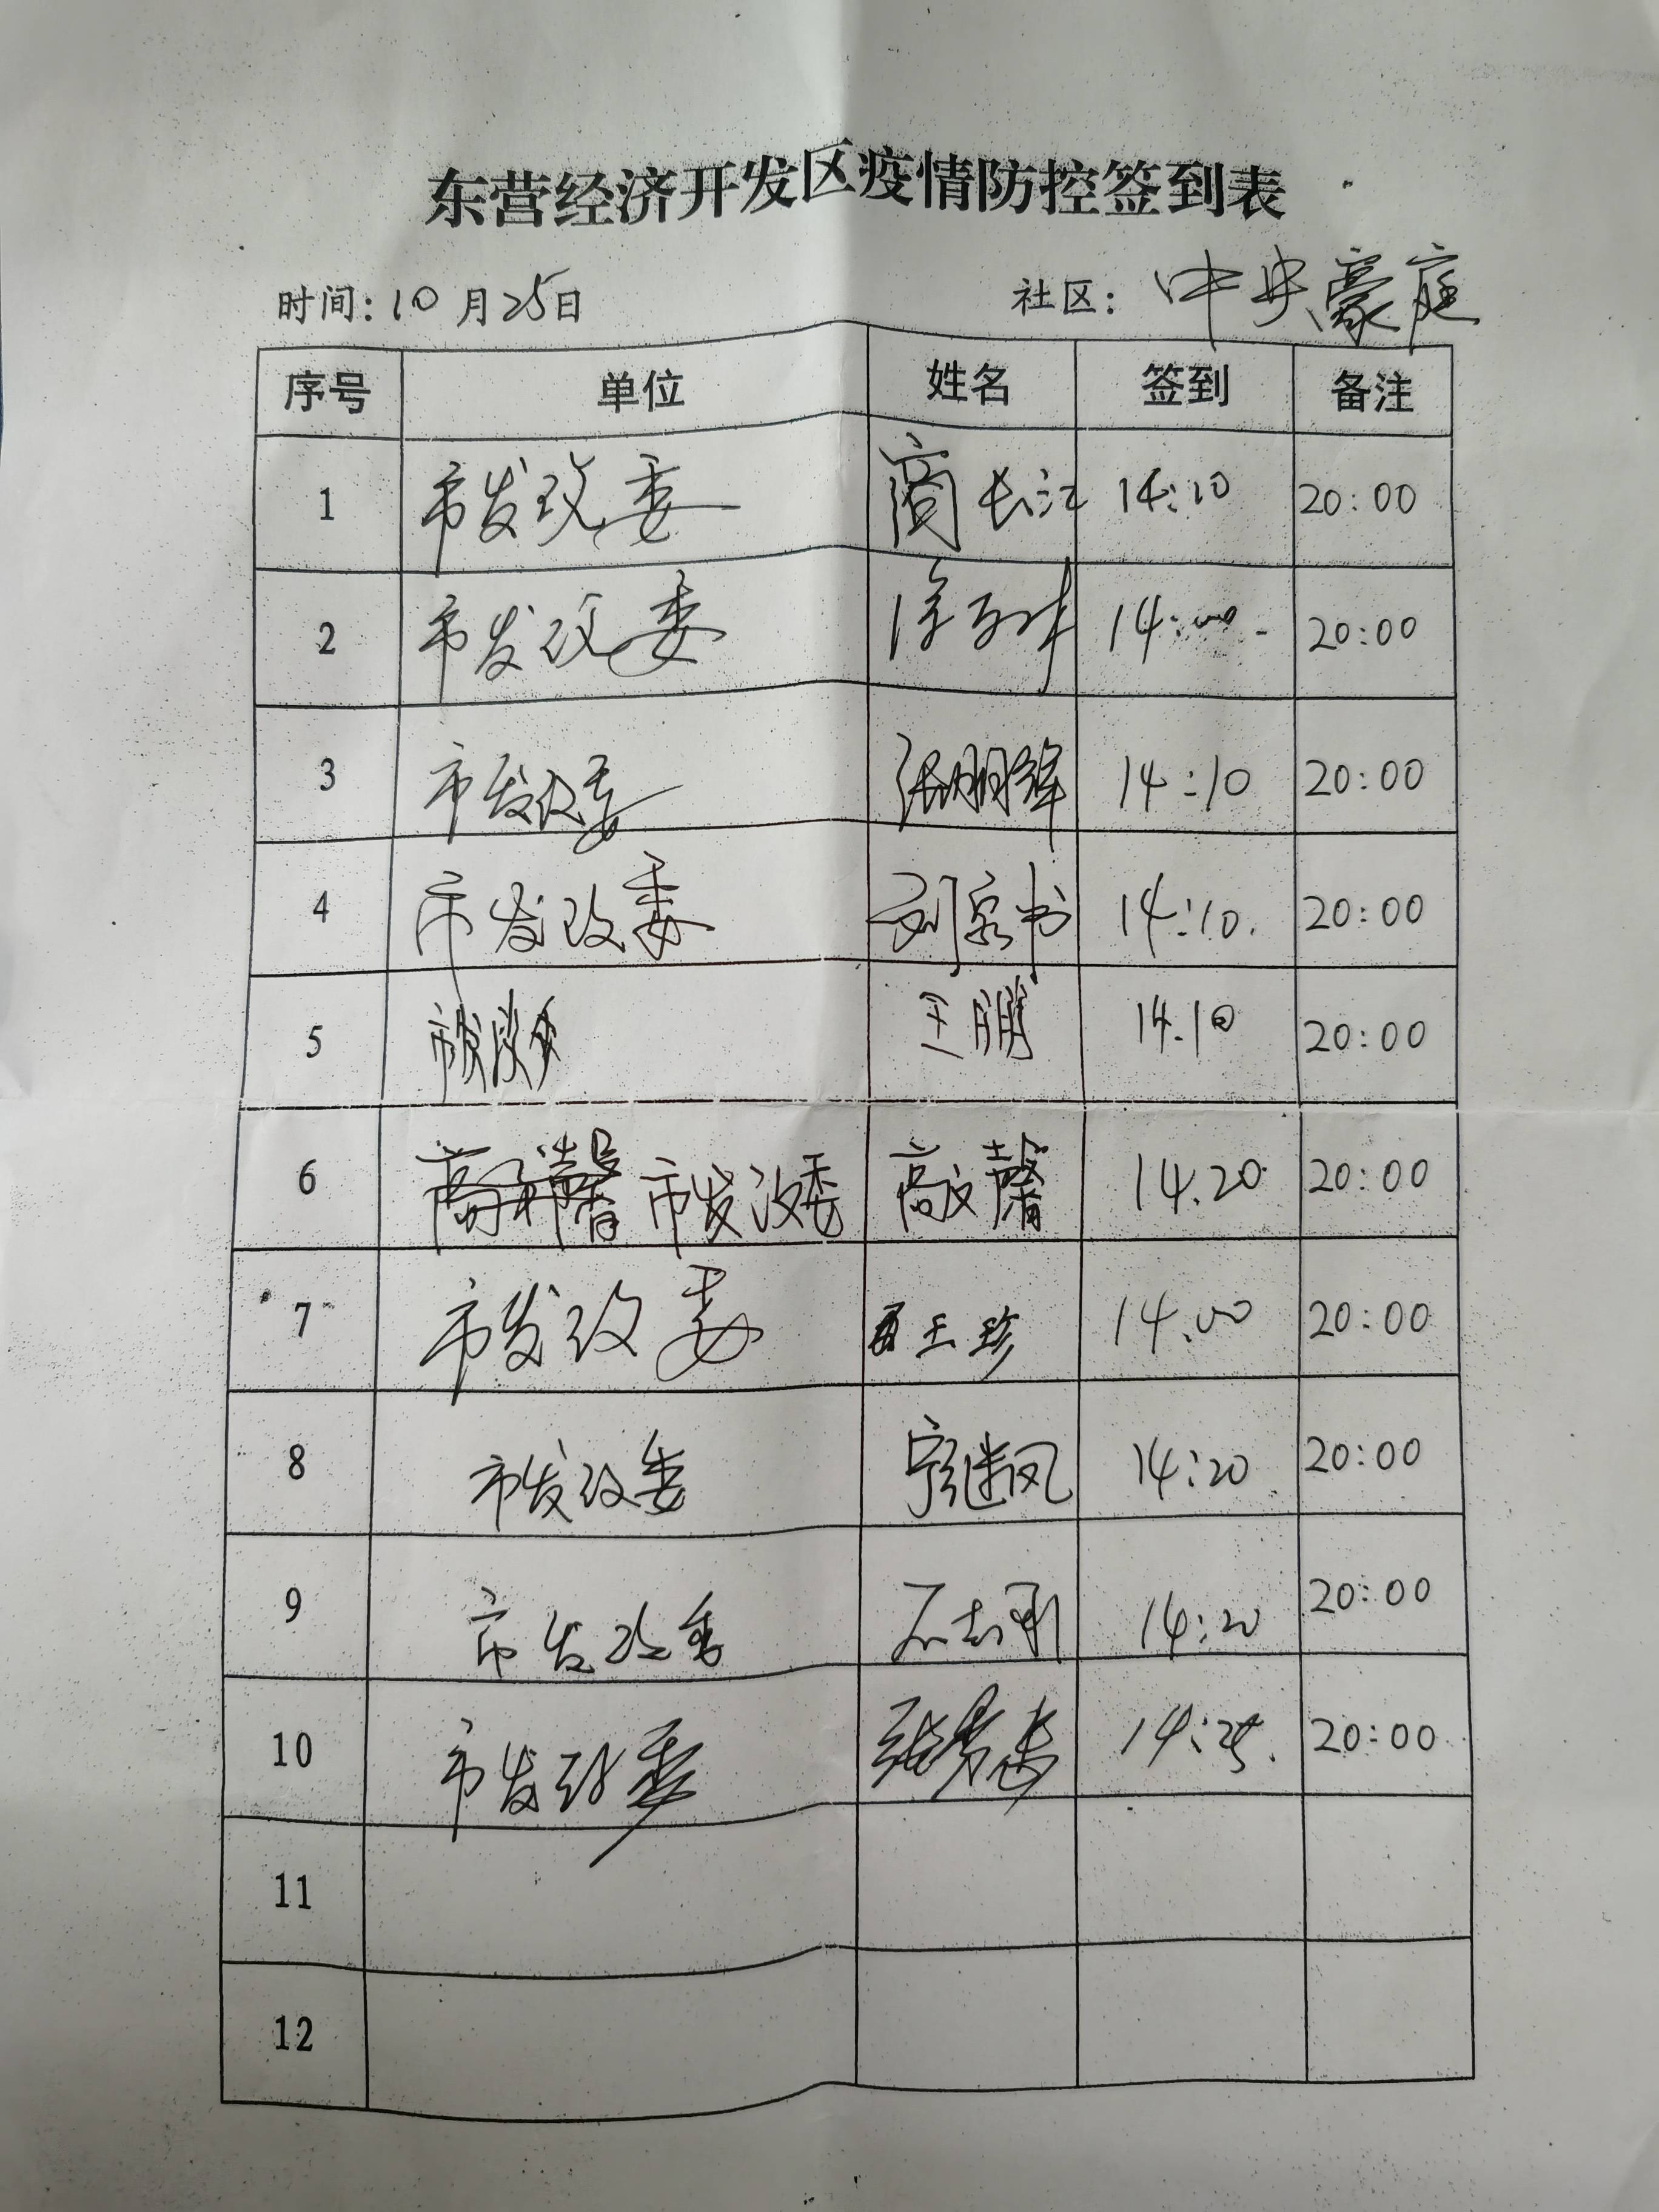 东营经济开发区疫情防控签到表
时间：10月25日 社区：中央豪庭
序号 单位 姓名 签到 备注
1 市发改委 商长江 14:10 20:00
2 市发改委 14:00 20:00
3 市发改委 张鹏辉 14:10 20:00
4 市发改委 刘泉书 14:10. 20:00
5 市发改委 王鹏 14.10 20:00
6 市发改委 高文馨 14.20 20:00
7 市发改委 王珍 14.00 20:00
8 市发改委 宁继凤 14:20 20:00
9 市发改委 石志刚 14:20 20:00
10 市发改委 14:25. 20:00
11
12